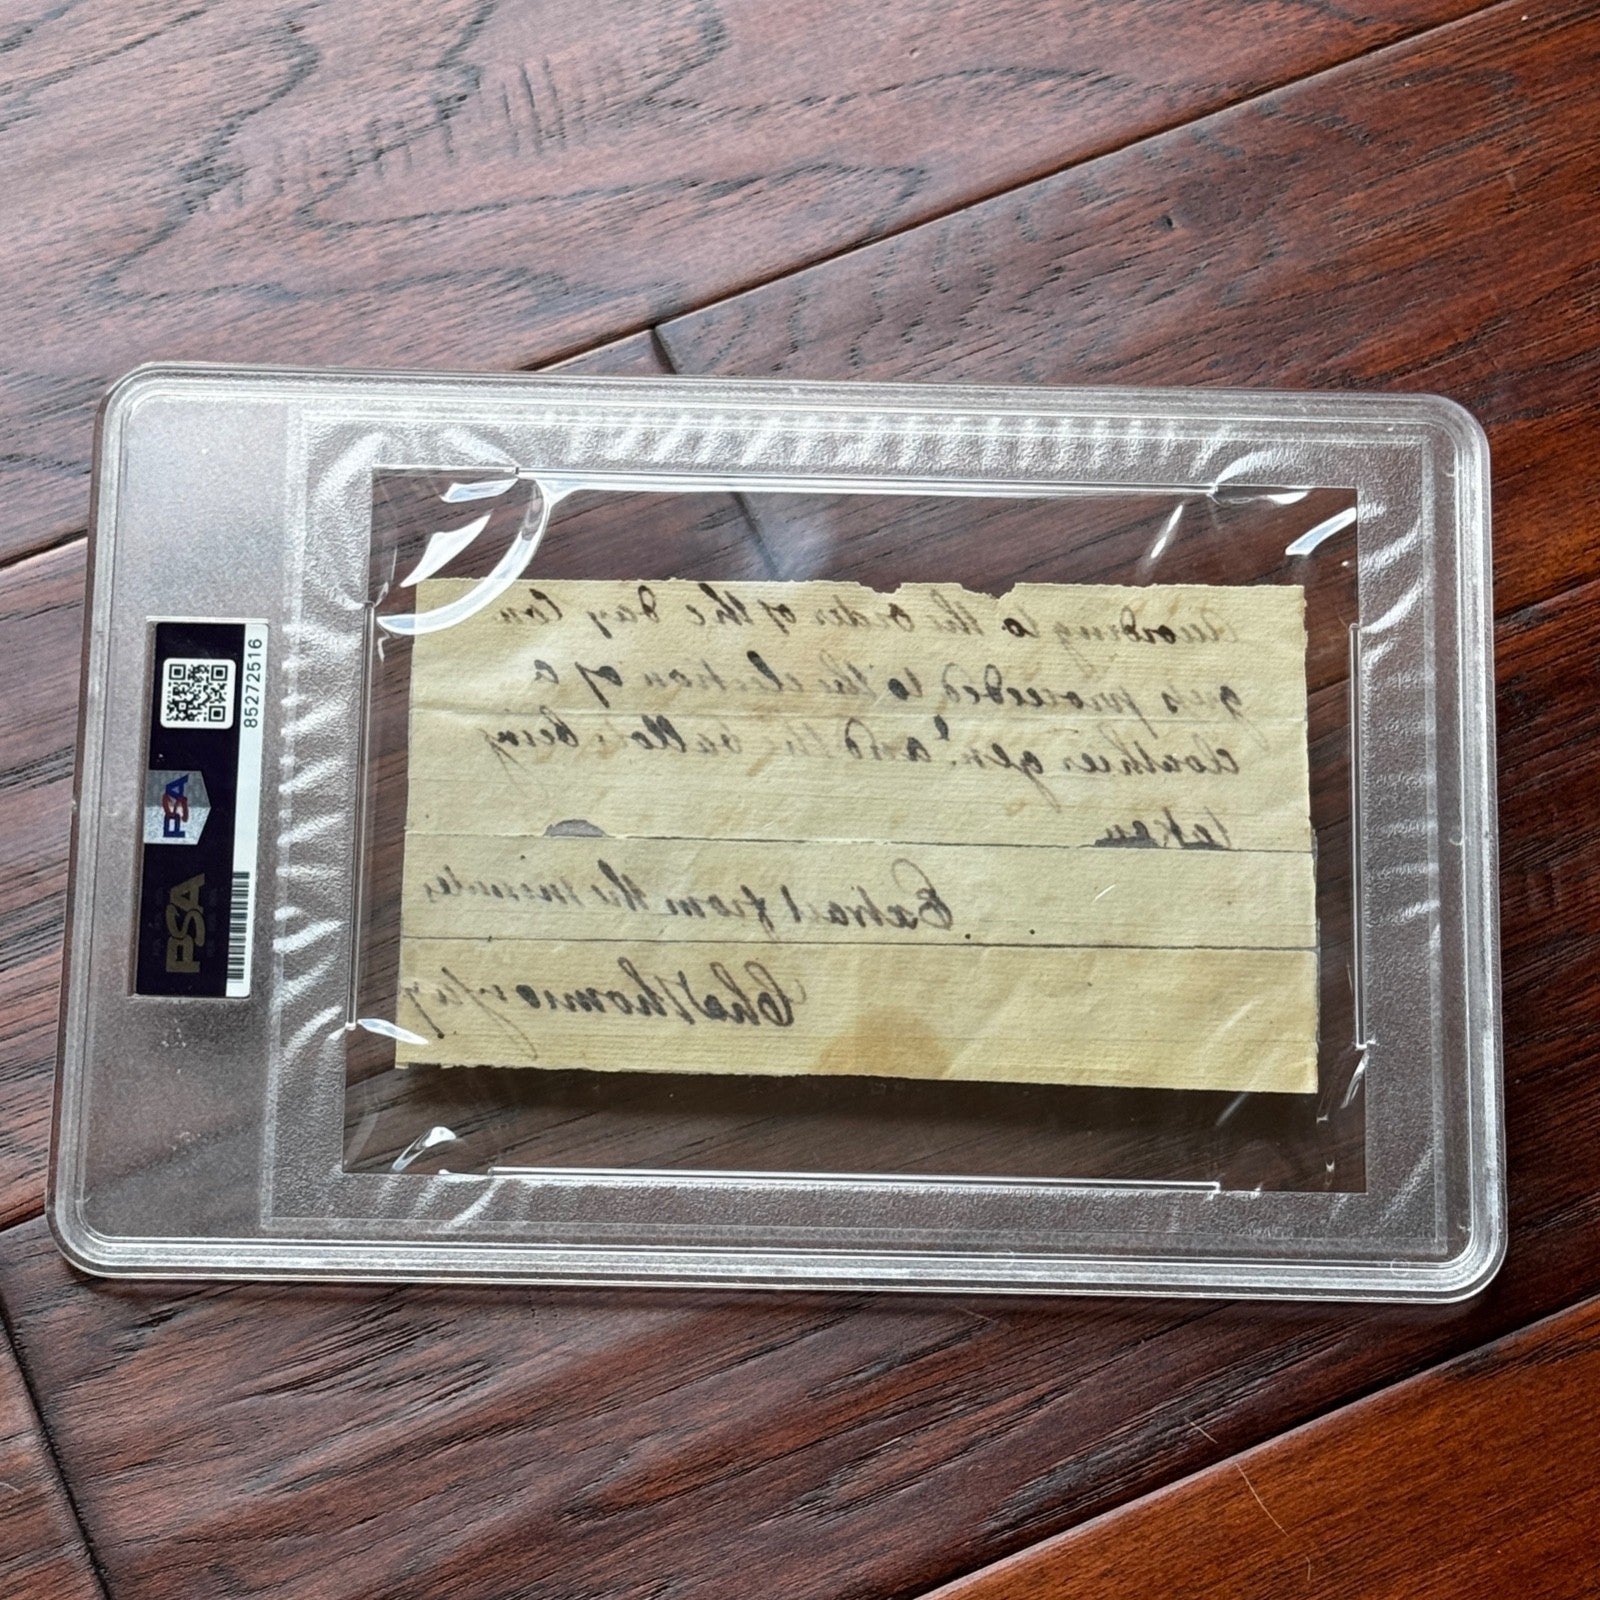 According to the order of the day Con
gress proceeded to the election of a
Cloathier genl. and the ballots being
taken
Extract from the minutes
Chas Thomson secy
PSA
PSA
85272516